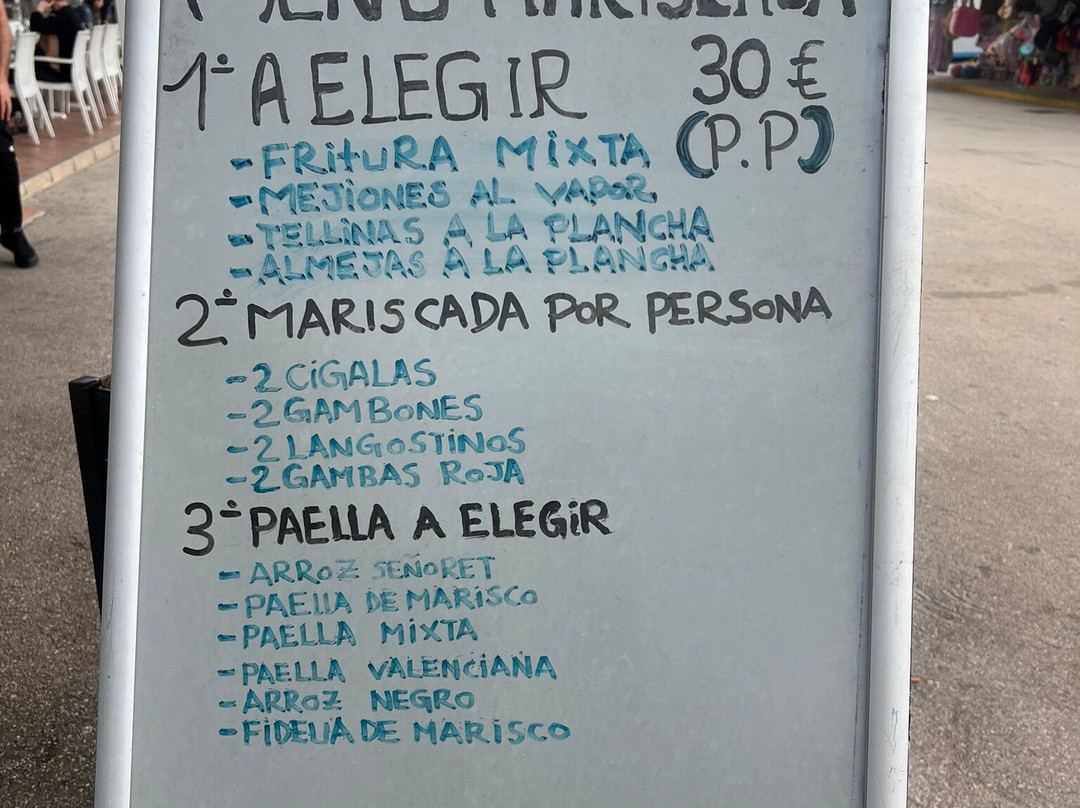 MENU MARISCADA
1º A ELEGIR 30 €
(P.P)
- FRITURA MIXTA
- MEJIONES AL VAPOR
- TELLINAS A LA PLANCHA
- ALMEJAS A LA PLANCHA
2º MARISCADA POR PERSONA
- 2 CIGALAS
- 2 GAMBONES
- 2 LANGOSTINOS
- 2 GAMBAS ROJA
3º PAELLA A ELEGIR
- ARROZ SEÑORET
- PAELLA DE MARISCO
- PAELLA MIXTA
- PAELLA VALENCIANA
- ARROZ NEGRO
- FIDEUA DE MARISCO